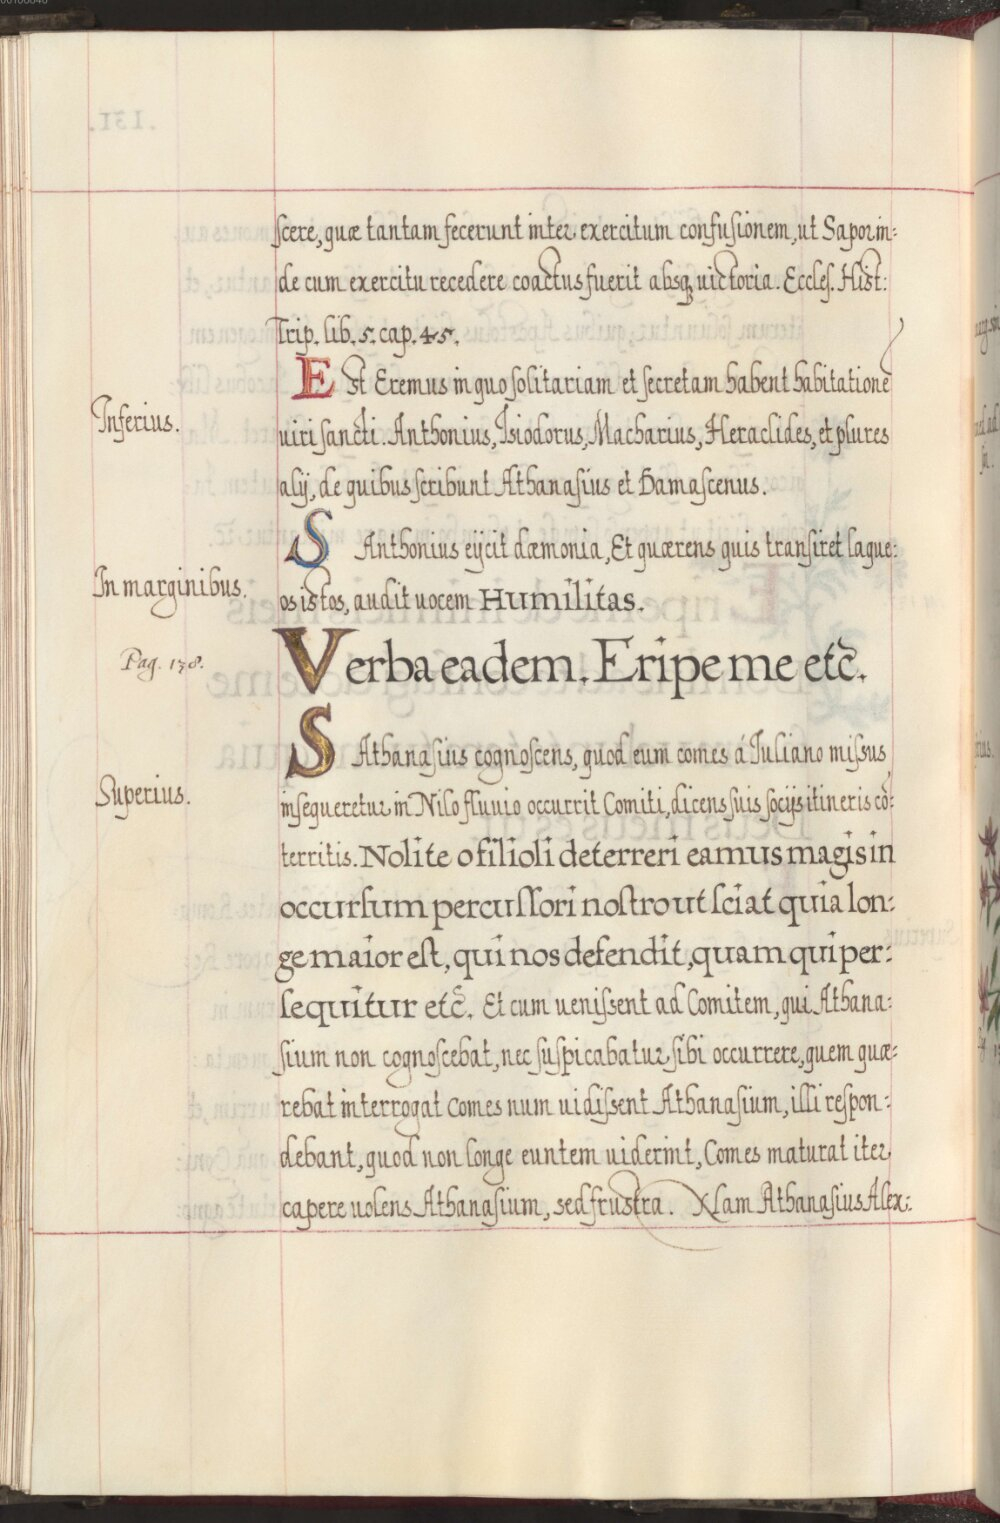 scere, quæ tantam fecerunt inter exercitum confusionem, ut Sapor in:
de cum exercitu recedere coactus fuerit absq; uictoria. Eccles. Hist:
Trip. lib. 5. cap. 45.
Est Eremus in quo solitariam et secretam habent habitatione
Inferius.
uiri sancti. Anthonius, Isiodorus, Macharius, Heraclides, et plures
alij, de quibus scribunt Athanasius et Damascenus.
S Anthonius eijcit dæmonia, Et quærens quis transiret laque:
In marginibus.
os istos, audit uocem Humilitas.
Verba eadem. Eripe me etc̃.
Pag. 138.
S Athanasius cognoscens, quod eum comes á Iuliano missus
Superius.
insequeretur in Nilo fluuio occurrit Comiti, dicens suis socijs itineris cō:
territis. Nolite o filioli deterreri eamus magis in
occursum percussori nostro ut sciat quia lon:
ge maior est, qui nos defendit, quam qui per:
sequitur etc̃. Et cum uenissent ad Comitem, qui Athana:
sium non cognoscebat, nec suspicabatur sibi occurrere, quem quæ:
rebat interrogat Comes num uidissent Athanasium, illi respon:
debant, quod non longe euntem uiderint, Comes maturat iter
capere uolens Athanasium, sed frustra. Nam Athanasius Alex: